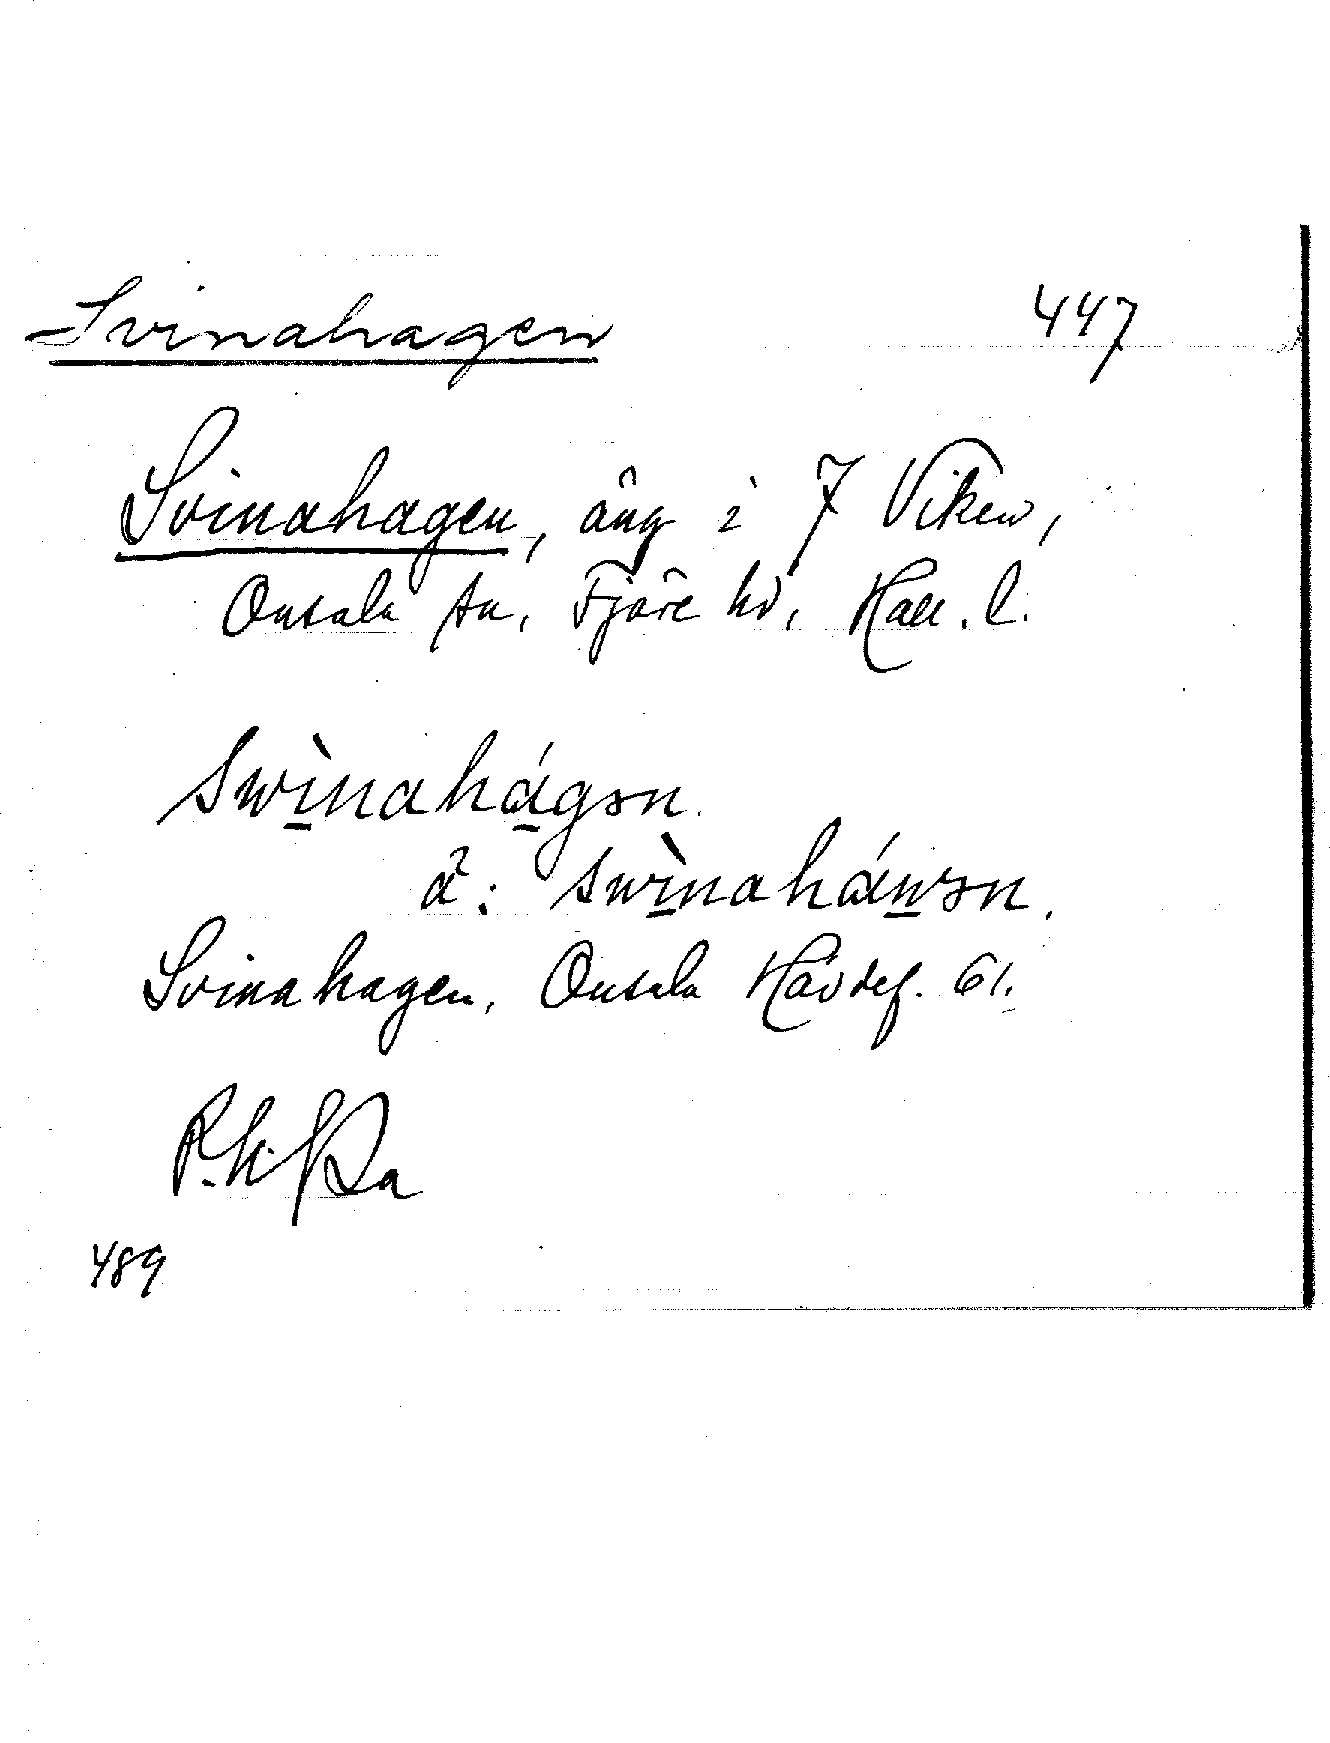 Svinahagen 447
Svinahagen, äng i 7 Viken,
Onsala sn, Fjäre hd, Hall. l.
swìnahágən.
ä: swìnaháwən.
Svinahagen, Onsala Hävdef. 61.
489